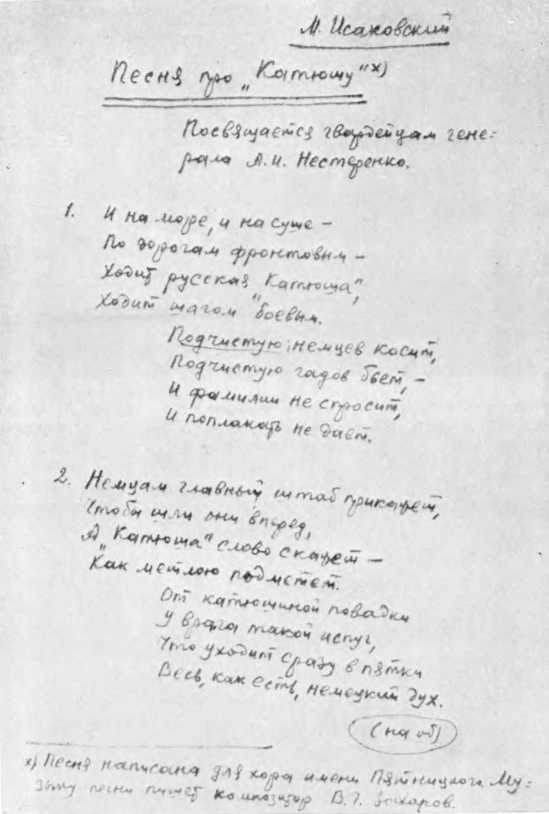 М. Исаковский
Песня про „Катюшу" х)
Посвящается гвардейцам гене=
рала А.И. Нестеренко.
1. И на море, и на суше –
По дорогам фронтовым –
Ходит русская „Катюша",
Ходит шагом боевым.
Подчистую немцев косит,
Подчистую гадов бьет, –
И фамилии не спросит,
И поплакать не дает.
2. Немцам главный штаб прикажет,
Чтобы шли они вперед,
А „Катюша" слово скажет –
Как метлою подметет.
От катюшиной повадки
У врага такой испуг,
Что уходит сразу в пятки
Весь, как есть, немецкий дух.
(на об)
х) Песня написана для хора имени Пятницкого. Му=
зыку песни пишет композитор В.Г. Захаров.